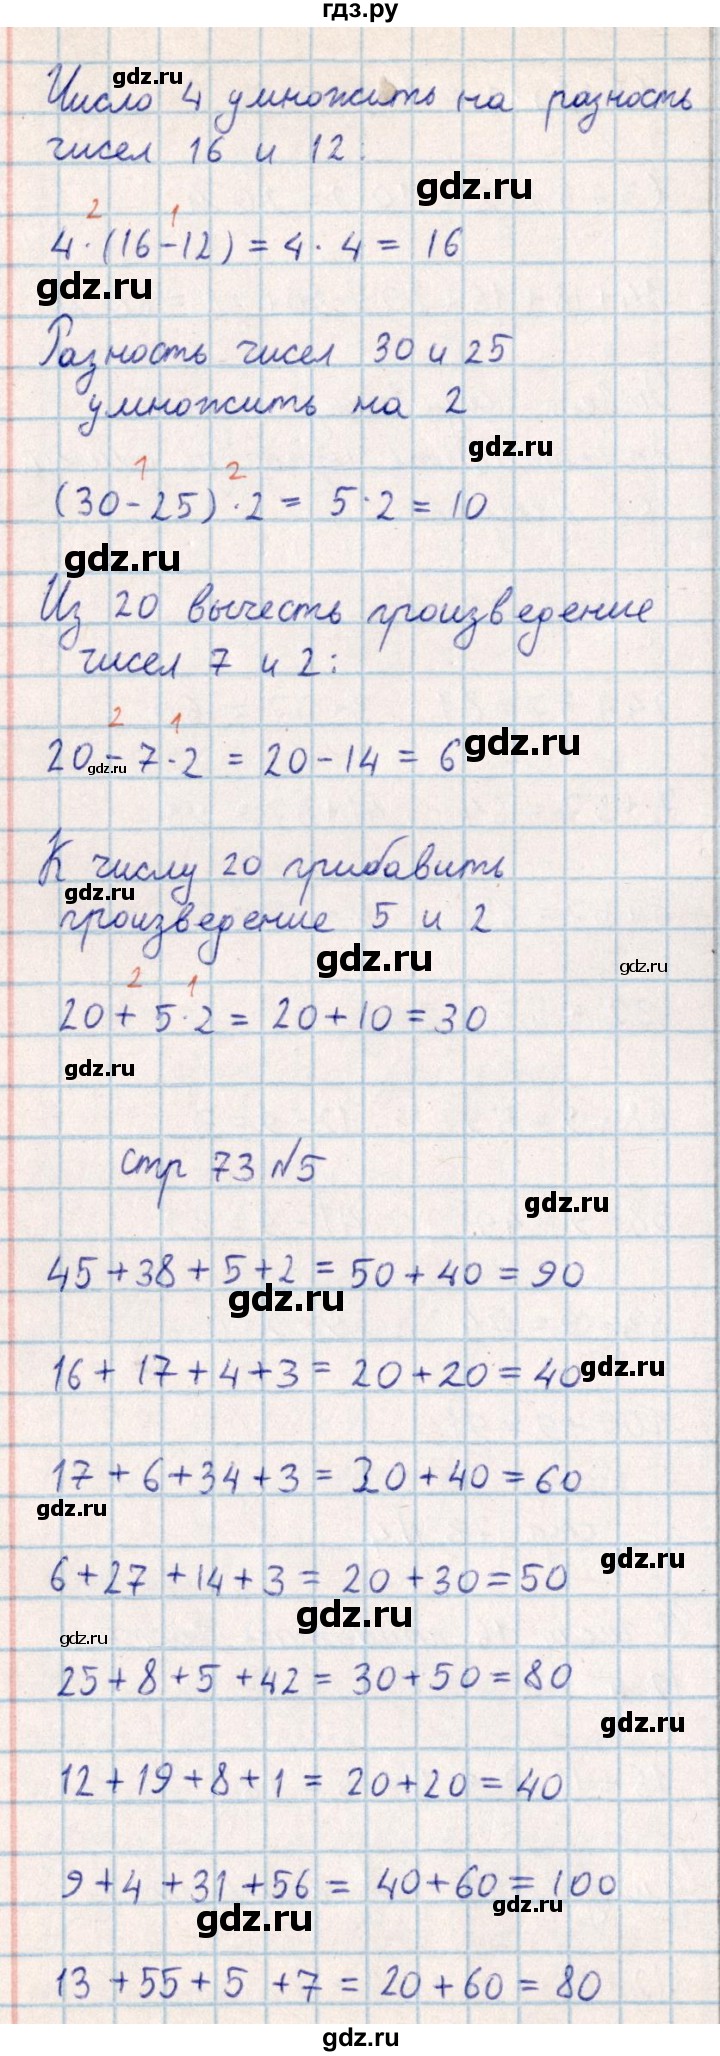 гдз.ру
gdz.ru
Число 4 умножить на разность
чисел 16 и 12:
gdz.ru
2 1
4·(16-12) = 4·4 = 16
gdz.ru
Разность чисел 30 и 25
умножить на 2
gdz.ru
1 2
(30-25)·2 = 5·2 = 10
gdz.ru
Из 20 вычесть произведение
чисел 7 и 2:
2 1
20 - 7·2 = 20-14 = 6
gdz.ru
gdz.ru
К числу 20 прибавить
gdz.ru
произведение 5 и 2
gdz.ru
gdz.ru
2 1
20 + 5·2 = 20+10 = 30
gdz.ru
стр 73 №5
gdz.ru
45+38+5+2 = 50+40 = 90
gdz.ru
16+17+4+3 = 20+20 = 40
gdz.ru
17+6+34+3 = 20+40 = 60
gdz.ru
gdz.ru
6+27+14+3 = 20+30 = 50
gdz.ru
gdz.ru
25+8+5+42 = 30+50 = 80
gdz.ru
12+19+8+1 = 20+20 = 40
9+4+31+56 = 40+60 = 100
gdz.ru
gdz.ru
13+55+5+7 = 20+60 = 80
gdz.ru